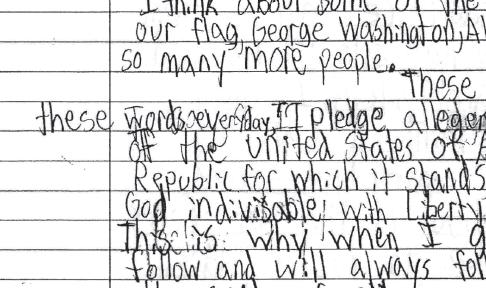 I think about some of the
our flag, George Washington, A
so many more people.
These
these words everyday, "I pledge alleger
of the United States of
Republic for which it stands
God indivisable, with Liberty
This is why when I g
follow and will always fol